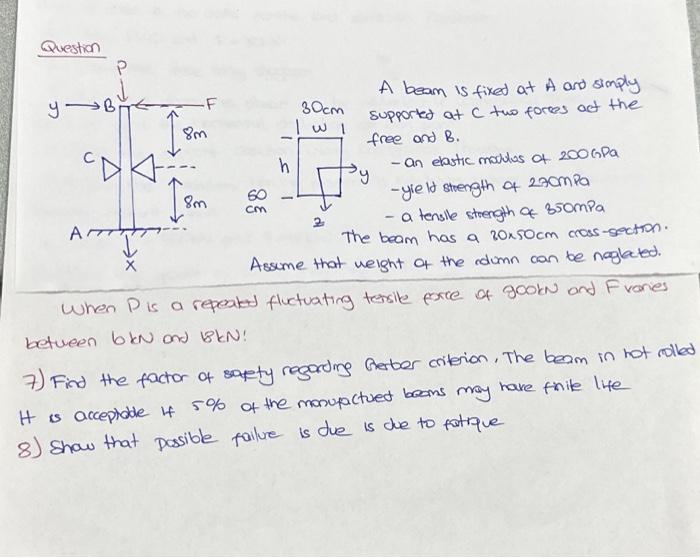 Question
P
y → B F
8m
C
8m
A
x
30cm
w
h
y
50
cm
z
A beam is fixed at A and simply
supported at C two forces act the
free and B.
- an elastic modulus of 200GPa
- yield strength of 290mPa
- a tensile strength of 350mPa
The beam has a 30x50cm cross-section.
Assume that weight of the column can be neglected.
When P is a repeated fluctuating tensile force of 900kN and F varies
between 6kN and 18kN!
7) Find the factor of safety regarding Gerber criterion, The beam in hot rolled
It is acceptable if 5% of the manufactued beams may have finite life
8) Show that possible failure is due is due to fatique